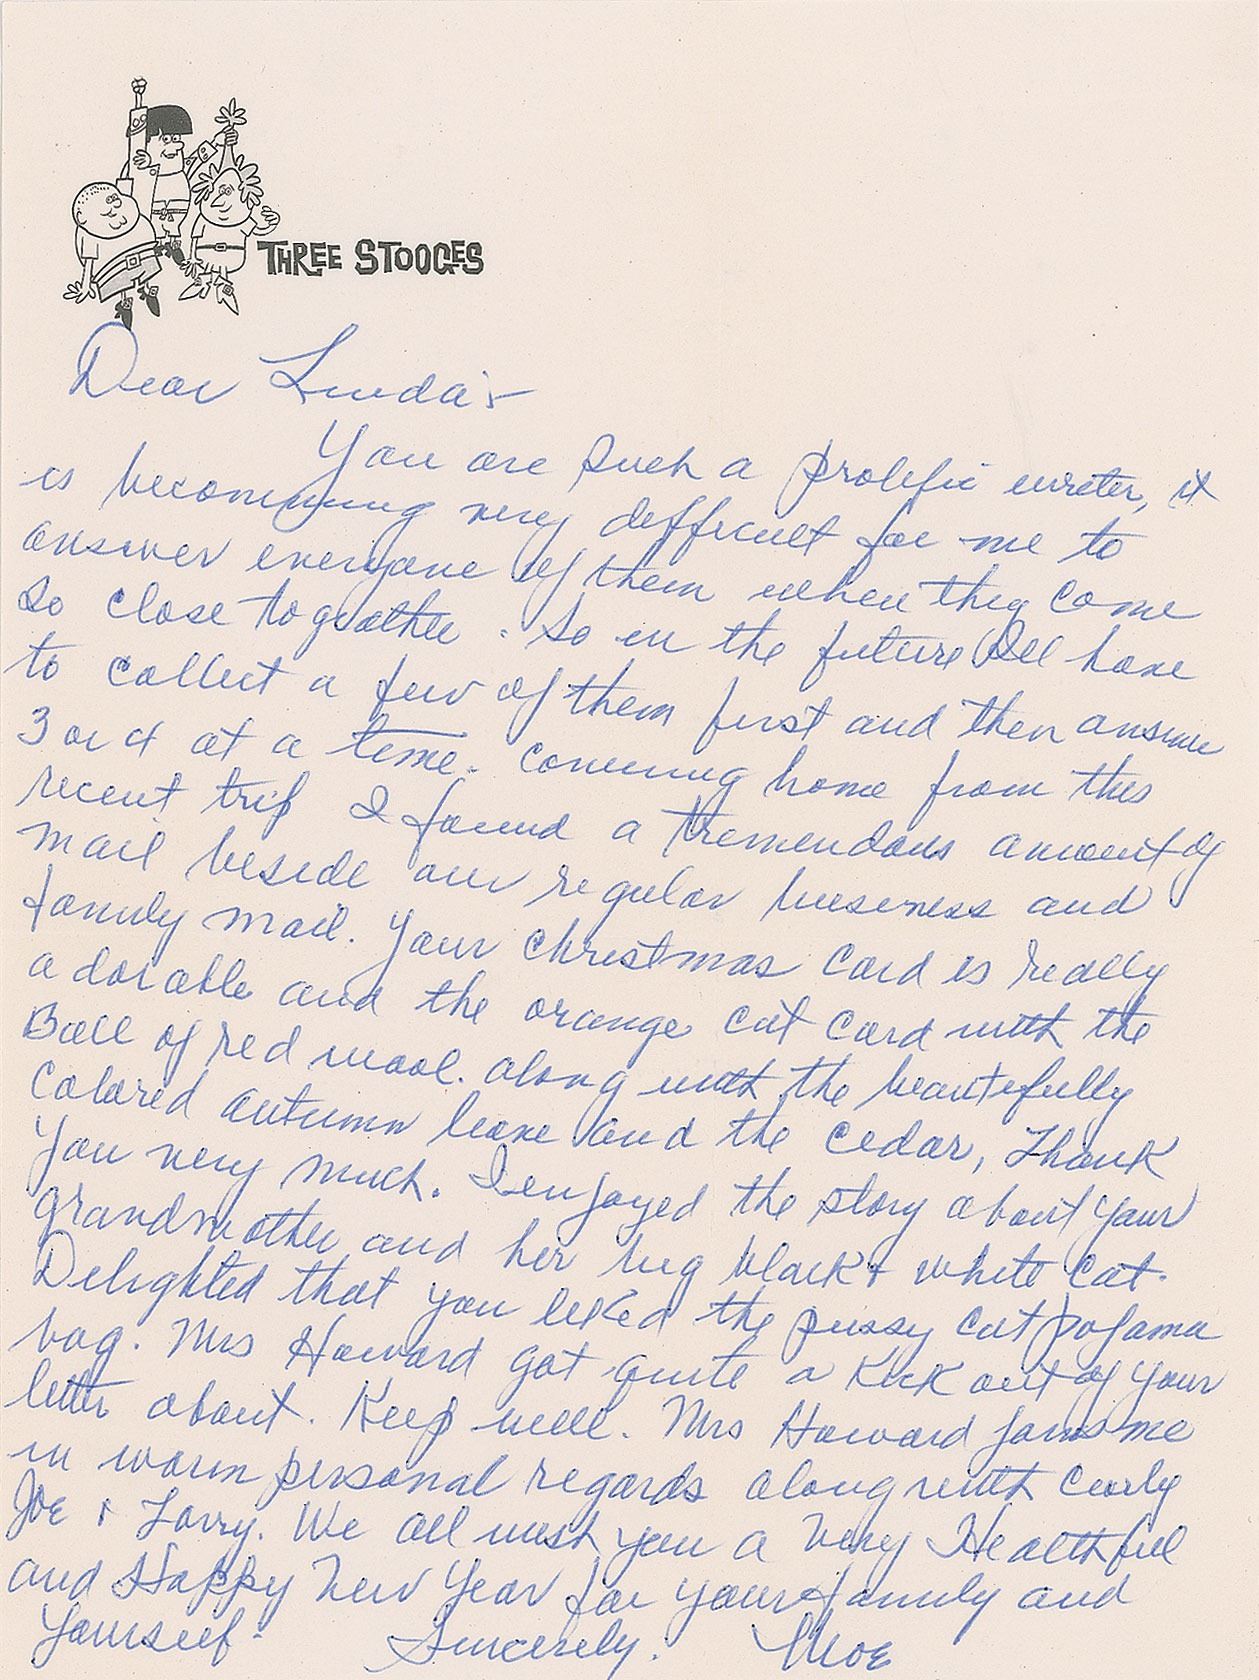 THREE STOOGES
Dear Linda:-
You are such a prolific writer, it
is becomming very difficult for me to
answer everyone of them when they come
so close togeather. So in the future I'll have
to collect a few of them first and then answer
3 or 4 at a time. Comming home from this
recent trip I found a tremendous amount of
mail beside our regular business and
family mail. Your Christmas Card is really
adorable and the orange cat card with the
Ball of red wool. along with the beautifully
Colored autumn leave and the cedar, Thank
you very much. I enjoyed the story about your
grandmother and her big black & white cat.
Delighted that you liked the pussy cat pojama
bag. Mrs Howard got quite a kick out of your
letter about. Keep well. Mrs Howard joins me
in warm personal regards along with Curly
Joe & Larry. We all wish you a Very Healthfull
and Happy New Year for your family and
yourself.
Sincerely. Moe